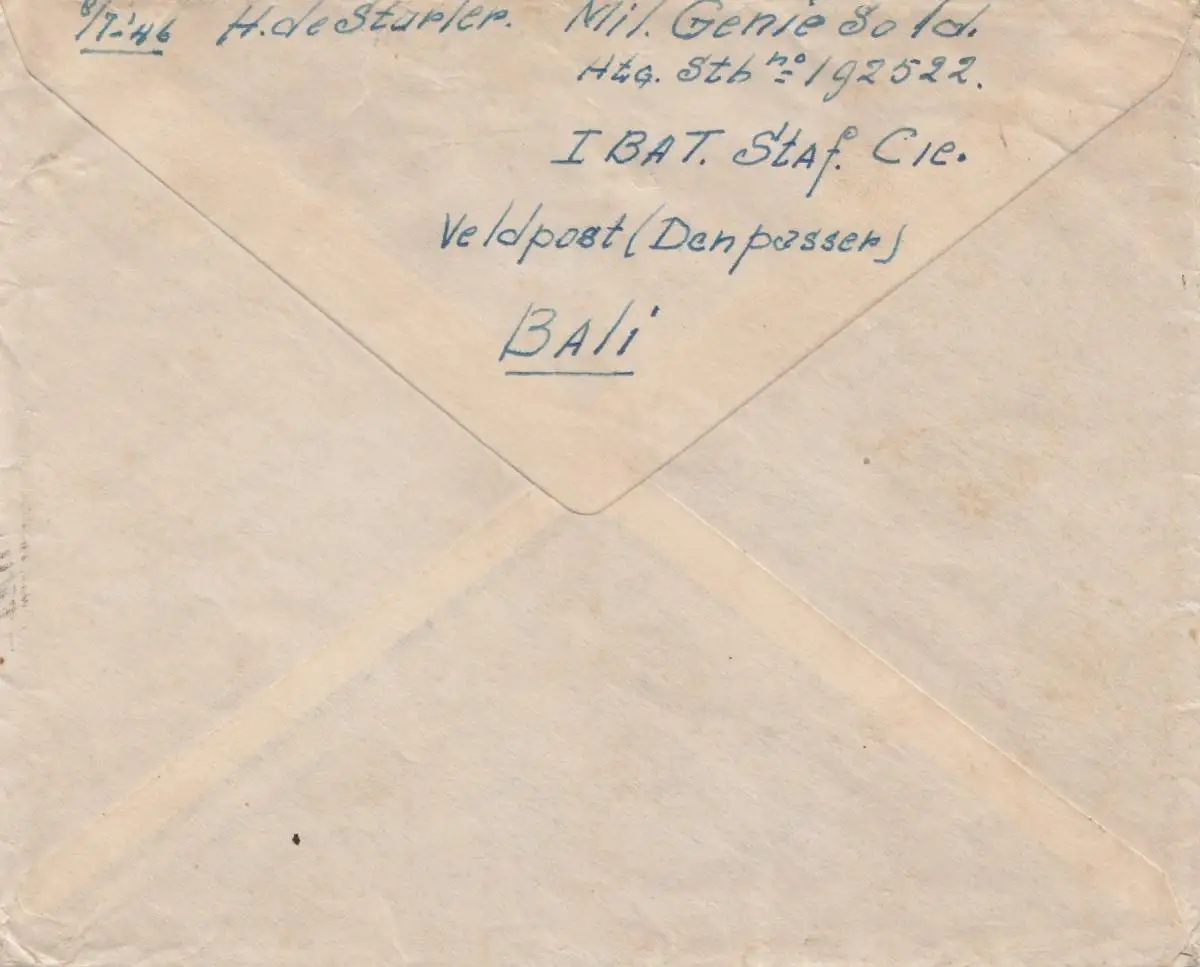 8/7-'46 H. de Sturler. Mil. Genie Sold.
Htg. Stb nº 192522.
I BAT. Staf. Cie.
Veldpost (Denpasser)
BALI